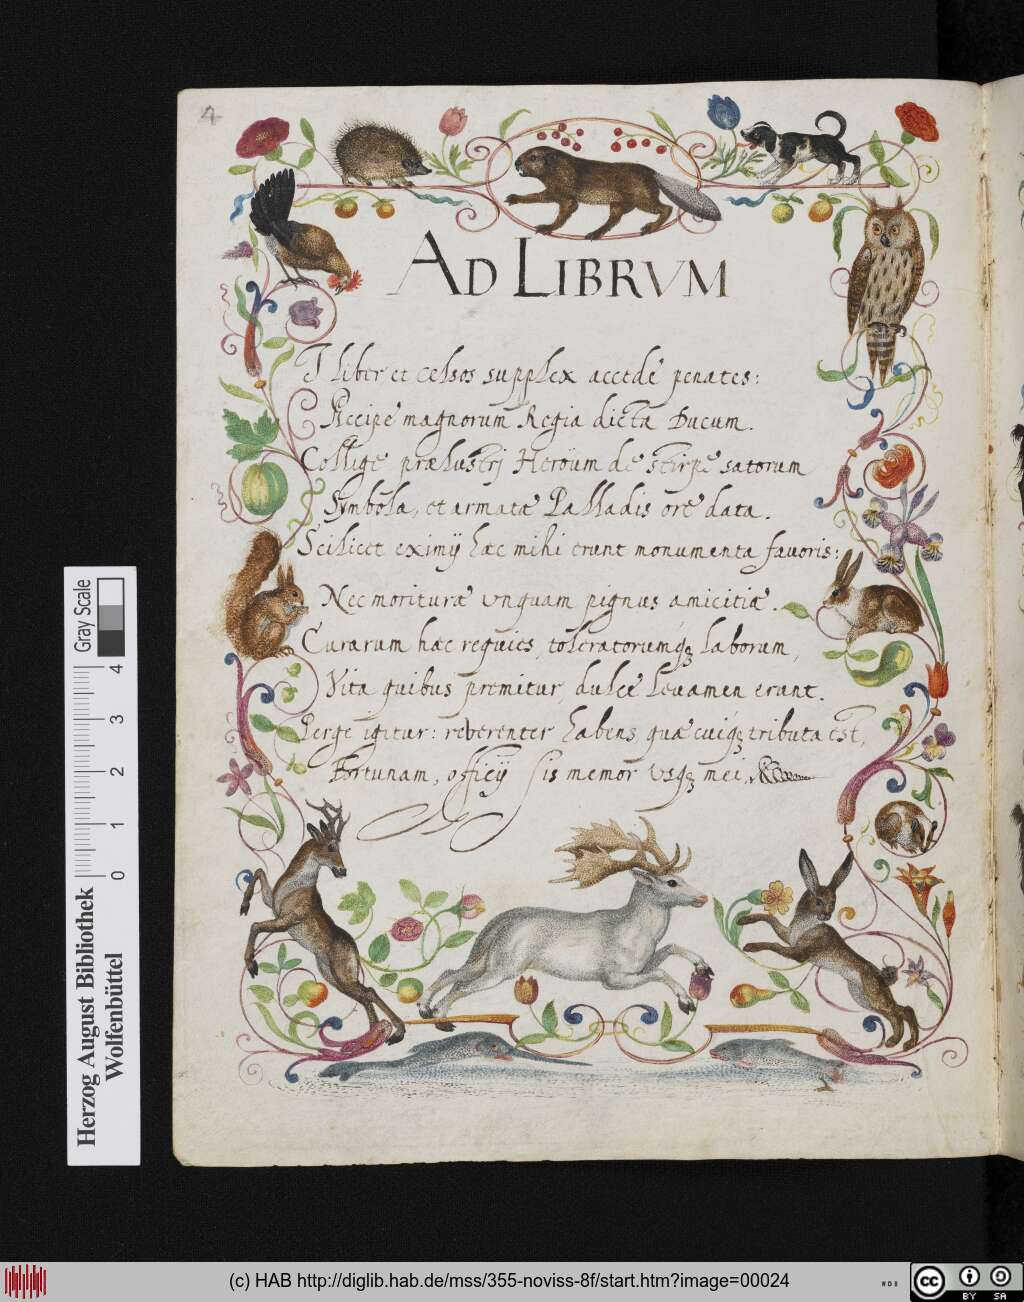 4
AD LIBRVM
I liber et celsos supplex accede penates:
Accipe magnorum Regia dicta Ducum.
Collige prælustrj Heroum de stirpe satorum
Symbola, et armatæ Palladis ore data.
Scilicet eximij hæc mihi erunt monumenta favoris:
Nec morituræ vnquam pignus amicitiæ.
Curarum hæc requies, toleratorumqȝ laborum,
Vita quibus premitur, dulce levamen erunt.
Perge igitur: reverenter habens, quæ cuiqȝ tributa est,
Fortunam, officij sis memor vsqȝ mei.
Gray Scale
0 1 2 3 4
Herzog August Bibliothek
Wolfenbüttel
(c) HAB http://diglib.hab.de/mss/355-noviss-8f/start.htm?image=00024
WDB
cc
BY SA